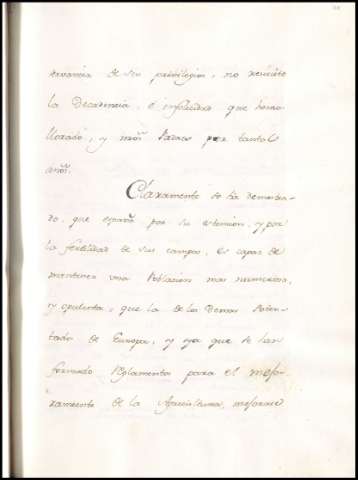 servancia de sus privilegios, no resistio
la Decadencia, è infelicidad que hemos
llorado, y por tantos
años.
Claramente se ha demostra-
do, que españa por su estension, y por
la fertilidad de sus campos, es capas de
mantener una Poblacion mas numerosa,
y opulenta, que la de los Demas Poten-
tados de Europa, y ya que se han
formado Reglamentos para el mejo-
ramiento de la Agricultura, mejorase